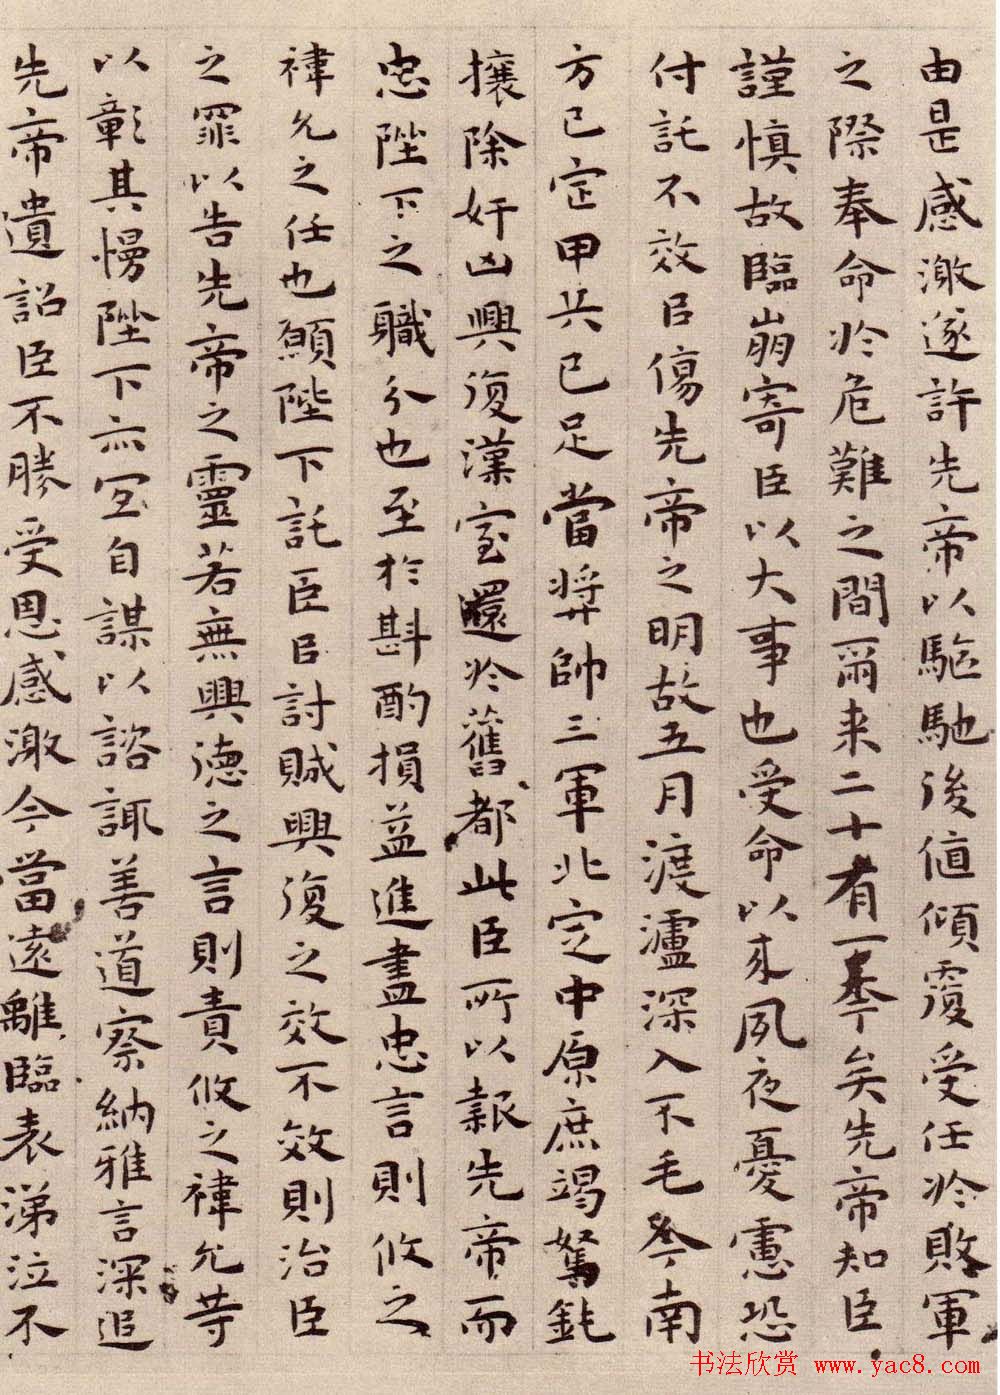 由是感激遂許先帝以驅馳後值傾覆受任於敗軍
之際奉命於危難之間爾来二十有一年矣先帝知臣
謹慎故臨崩寄臣以大事也受命以来夙夜憂慮恐
付託不效㠯傷先帝之明故五月渡瀘深入不毛今南
方已定甲兵已足當獎帥三軍北定中原庶竭駑鈍
攘除奸凶興復漢室還於舊都此臣所以報先帝而
忠陛下之職分也至於斟酌損益進盡忠言則攸之
禕允之任也願陛下託臣㠯討賊興復之效不效則治臣
之罪以告先帝之靈若無興德之言則責攸之禕允等
以彰其慢陛下亦宜自謀以諮諏善道察納雅言深追
先帝遺詔臣不勝受恩感激今當遠離臨表涕泣不
书法欣赏 www.yac8.com